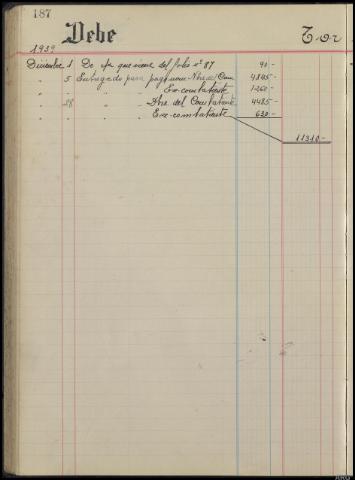 187
Debe
Tor
1939
Diciembre 1 De
que viene del folio nº 87 90-
" 5 Entregado para pago
4845-
" " " " Ex-combatiente 1260-
" 28 " "
del Combatiente 4485-
" " " " Ex-combatiente 630-
11310-